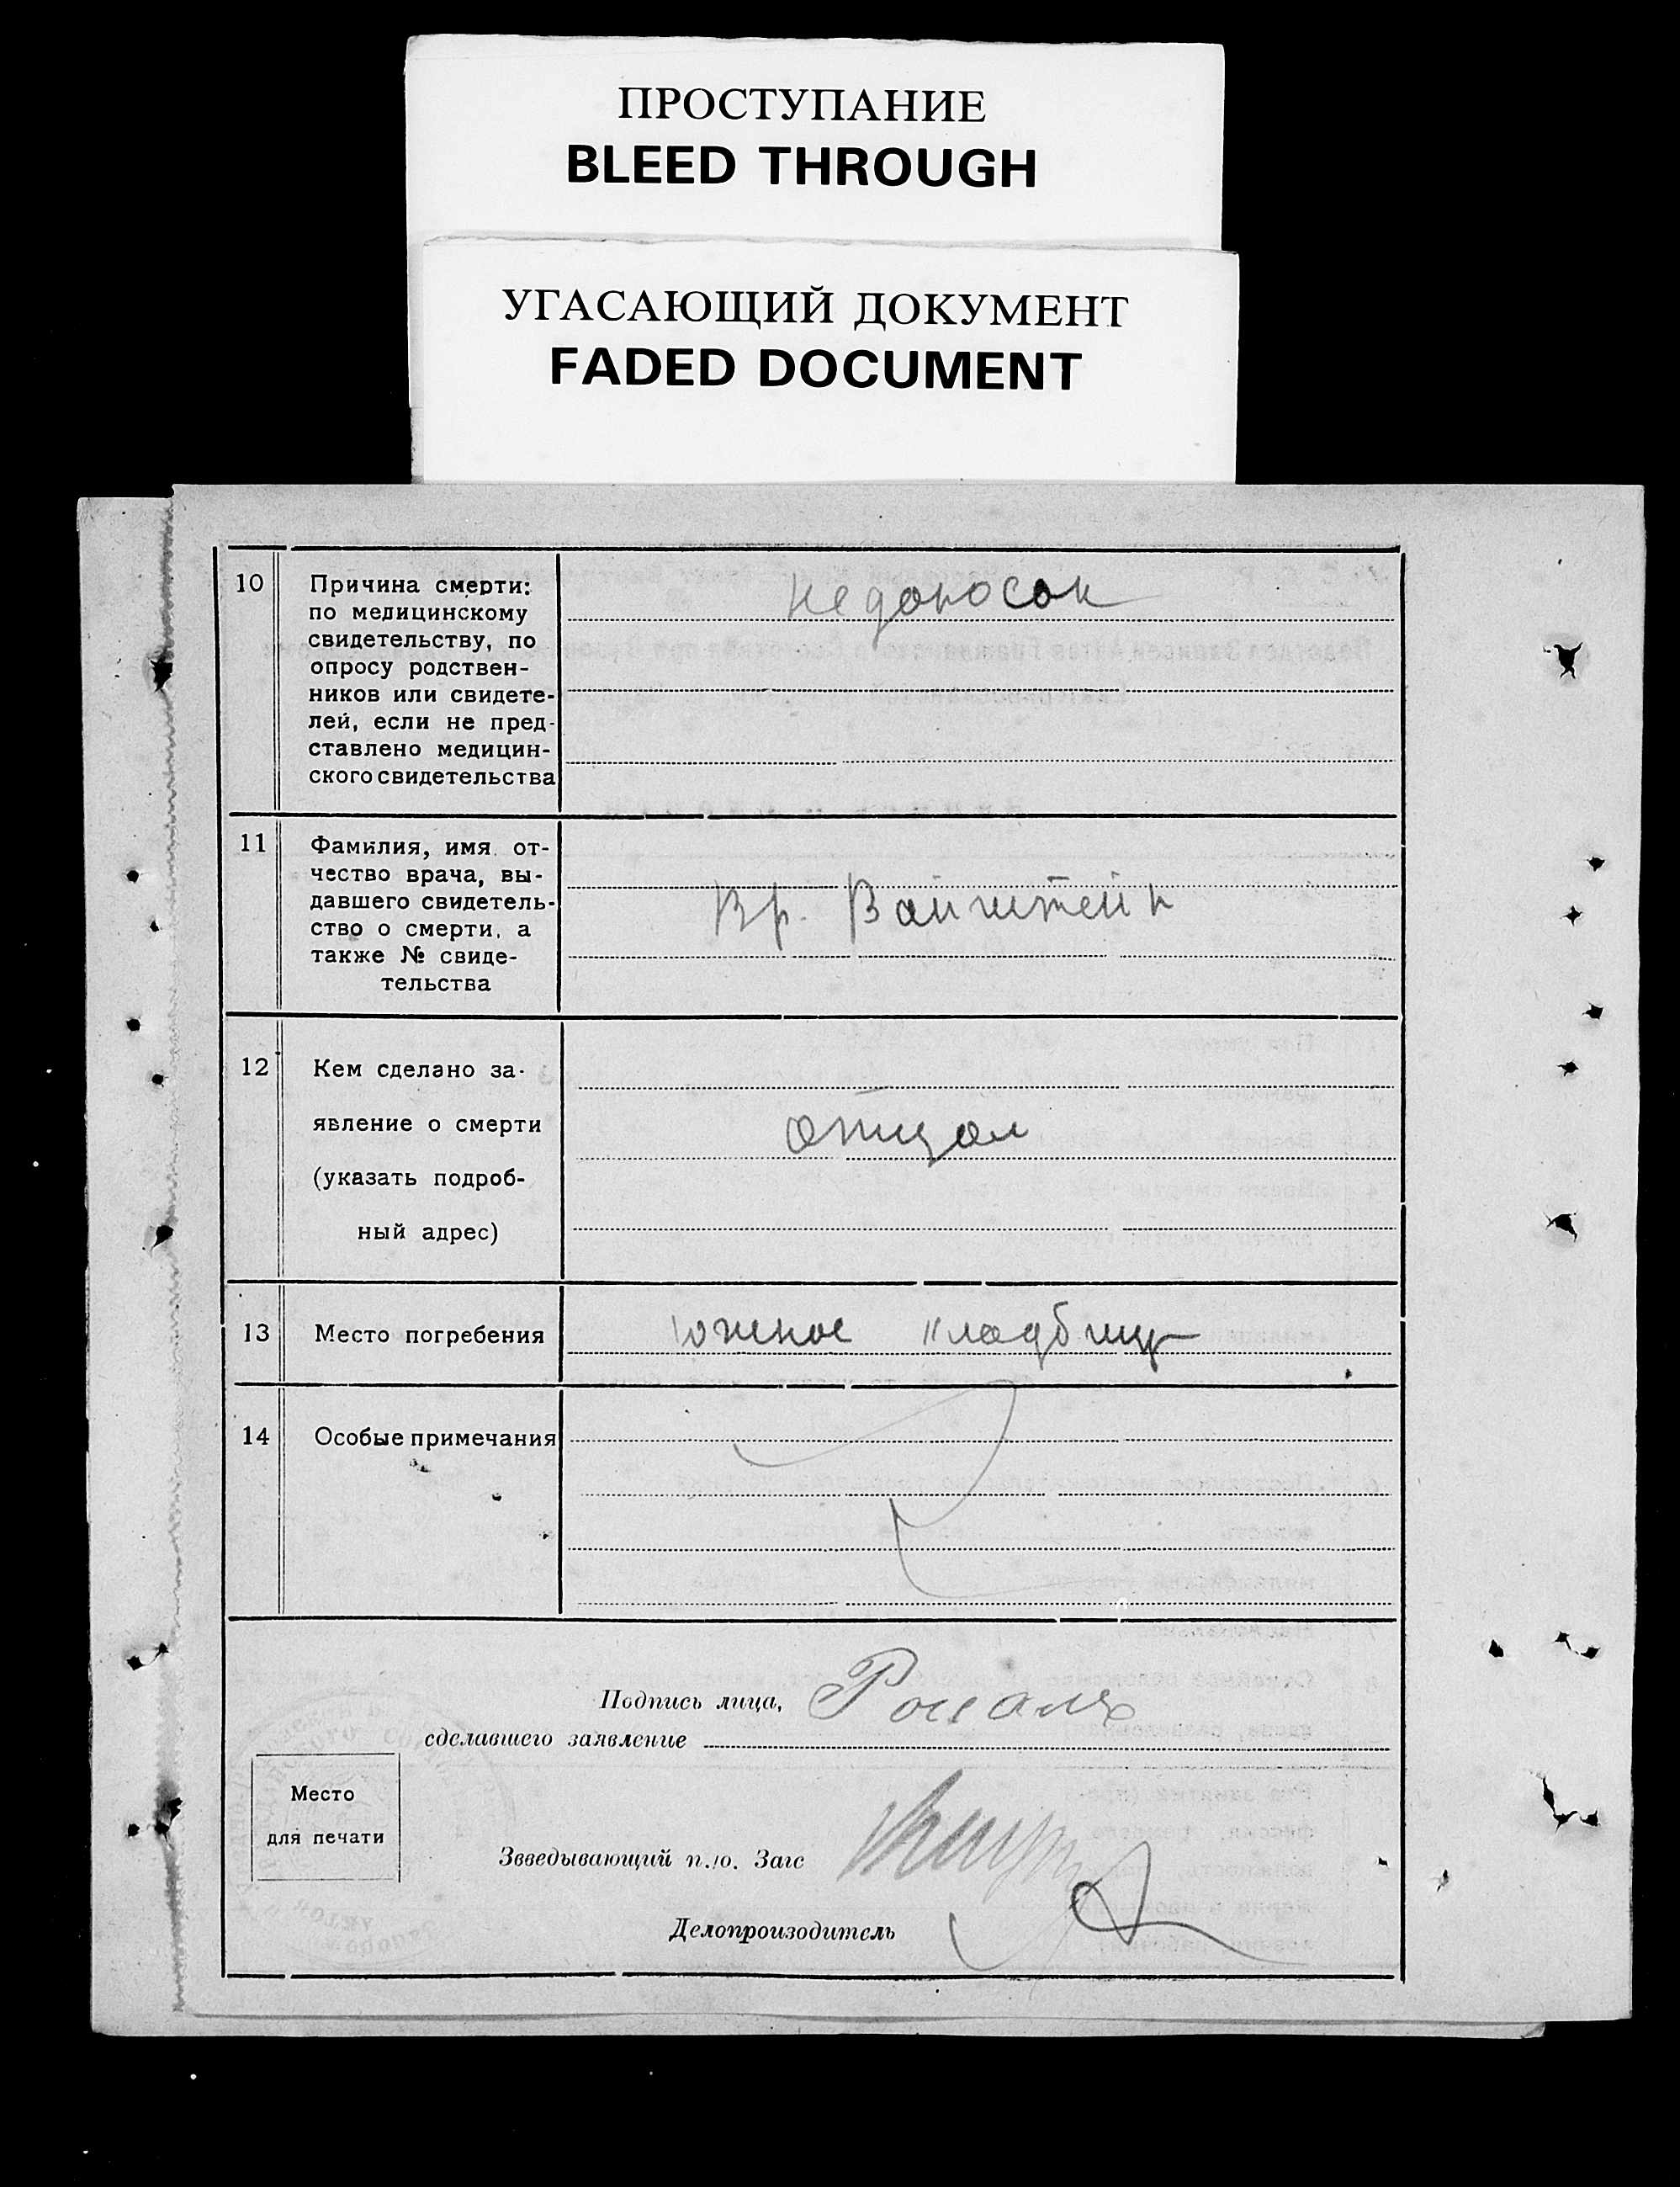 ПРОСТУПАНИЕ
BLEED THROUGH
УГАСАЮЩИЙ ДОКУМЕНТ
FADED DOCUMENT
10
Причина смерти:
по медицинскому
свидетельству, по
опросу родствен-
ников или свидете-
лей, если не пред-
ставлено медицин-
ского свидетельства
недоносок
11
Фамилия, имя, от-
чество врача, вы-
давшего свидетель-
ство о смерти, а
также № свиде-
тельства
Вр. Вайнштейн
12
Кем сделано за-
явление о смерти
(указать подроб-
ный адрес)
отцом
13
Место погребения
южное кладбище
14
Особые примечания
Подпись лица,
сделавшего заявление
Место
для печати
Зведывающий п./о. Загс
Делопроизводитель